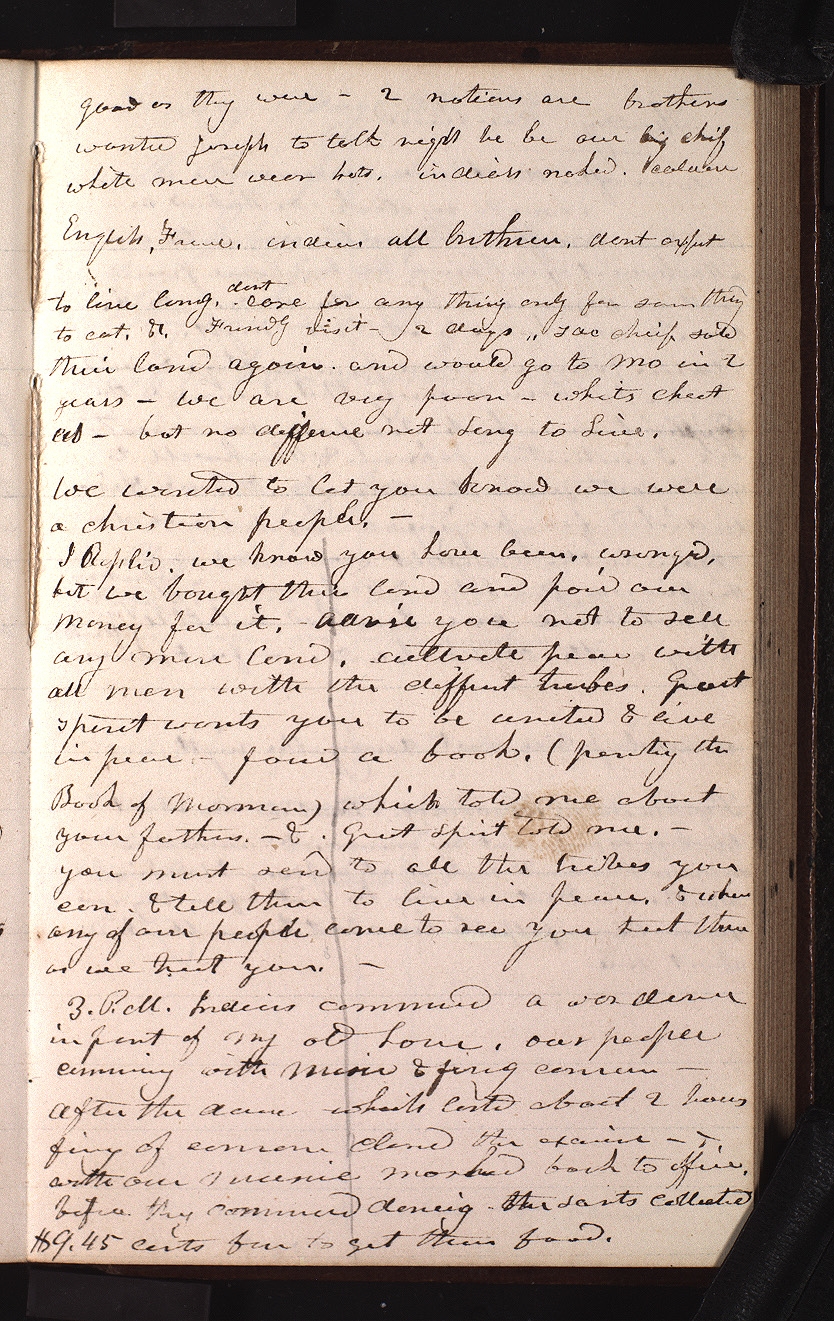 good as they were - 2 nations are brothers
wanted Joseph to talk might he be our big chief
white men wear hats. indians naked. column
English, French. indian all brethren. dont expect
to live long. dont care for any thing only for some thing
to eat. &. Friendly visit - 2 days " Sac cheif sold
their land again. and would go to Mo in 2
years - we are very poor - whits cheat
us - but no differne not long to live.
We wanted to let you know we were
a christian people. -
I Replid. we know you have been. wronged.
but we bought this land and paid our
money for it. - advise you not to sell
any more land. cultivate peace with
all men with the diffrent tribes. Great
spirit wants you to be united & live
in peace - found a book. (presenting the
Book of Mormon) which told me about
your fathers. - & . Great spirit told me. -
you must send to all the tribes you
can. & tell them to live in peace. & when
any of our people come to see you treat them
as we treat you. -
3. P.M. Indians commenced a war dance
in front of my old house. our people
comming with music & firing cannon -
after the dance which lasted about 2 hours
firing of cannon closed the exercise - &
with our music marched back to office.
before they commenced dancing the saints collected
$9.45 cents for to get them food.